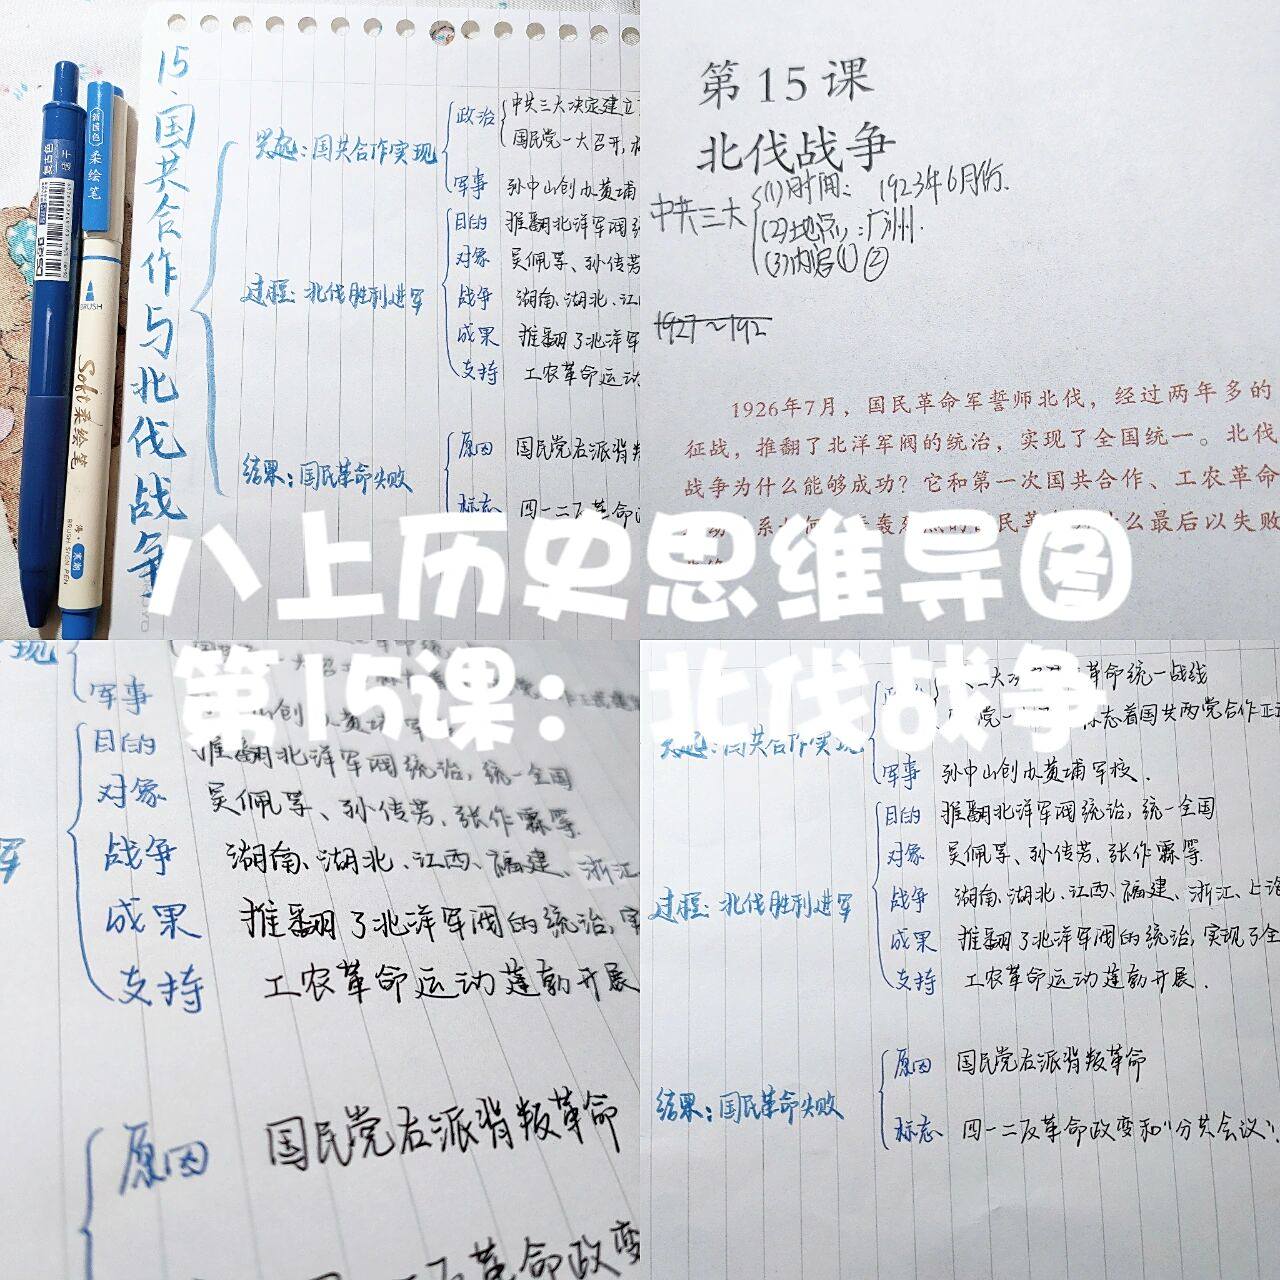 15.国共合作与北伐战争
兴起:国共合作实现
政治
中共三大决定建立
国民党一大召开,
军事
孙中山创办黄埔
过程:北伐胜利进军
目的
推翻北洋军阀统
对象
吴佩孚、孙传芳
战争
湖南、湖北、江
成果
推翻了北洋军
支持
工农革命运动
结果:国民革命失败
原因
国民党右派背叛
标志
四一二反革命
柔绘笔
BRUSH
Soft柔绘笔
BRUSH SIGN PEN
第15课
北伐战争
中共三大
(1)时间: 1923年6月份.
(2)地点:广州.
(3)内容①②
1927~192
1926年7月,国民革命军誓师北伐,经过两年多的
征战,推翻了北洋军阀的统治,实现了全国统一。北伐
战争为什么能够成功?它和第一次国共合作、工农革命
最后以失败
八上历史思维导图
第15课:北伐战争
现
军事
目的
推翻北洋军阀统治,统一全国
对象
吴佩孚、孙传芳、张作霖等.
战争
湖南、湖北、江西、福建、浙江
成果
推翻了北洋军阀的统治,实
支持
工农革命运动蓬勃开展
军
原因
国民党右派背叛革命
革命政变
兴起:国共合作实现
革命统一战线
标志着国共两党合作正式
军事
孙中山创办黄埔军校.
过程:北伐胜利进军
目的
推翻北洋军阀统治,统一全国
对象
吴佩孚、孙传芳、张作霖等.
战争
湖南、湖北、江西、福建、浙江、上海
成果
推翻了北洋军阀的统治,实现了全
支持
工农革命运动蓬勃开展.
结果:国民革命失败
原因
国民党右派背叛革命
标志
四一二反革命政变和“分共会议”.